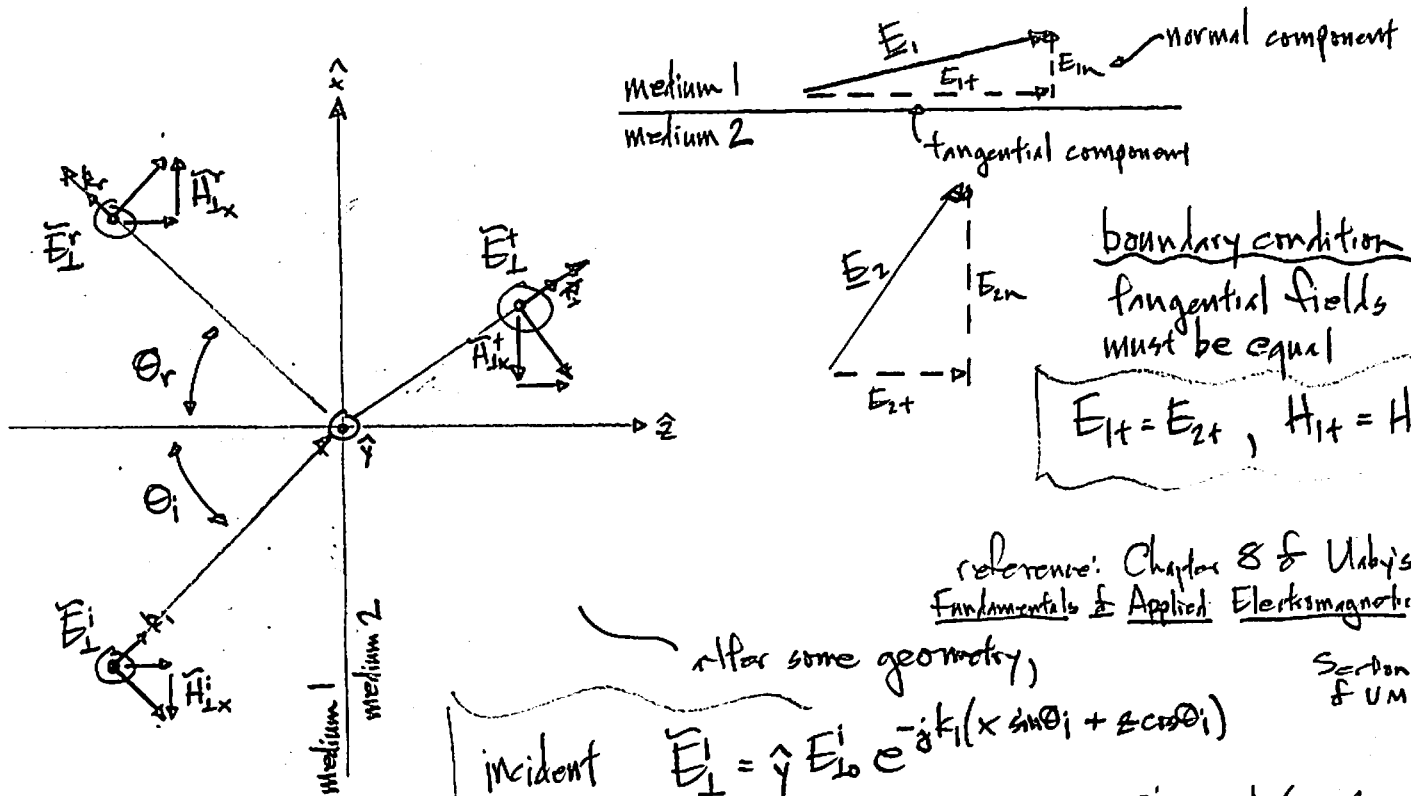 x̂
k_r
H̃^r_⊥x
Ẽ^r_⊥
θ_r
Ẽ^t_⊥
H̃^t_⊥x
ẑ
ŷ
θ_i
Ẽ^i_⊥
k_i
H̃^i_⊥x
medium 1
medium 2
E_1
normal component
E_1n
E_1t
medium 1
medium 2
tangential component
E_2
E_2n
E_2t
boundary condition
tangential fields
must be equal
E_1t = E_2t , H_1t = H
reference: Chapter 8 of Ulaby's
Fundamentals of Applied Electromagnetic
Section
of UM
after some geometry,
incident Ẽ^i_⊥ = ŷ E^i_⊥0 e^{-jk_1(x sinθ_i + z cosθ_i)}